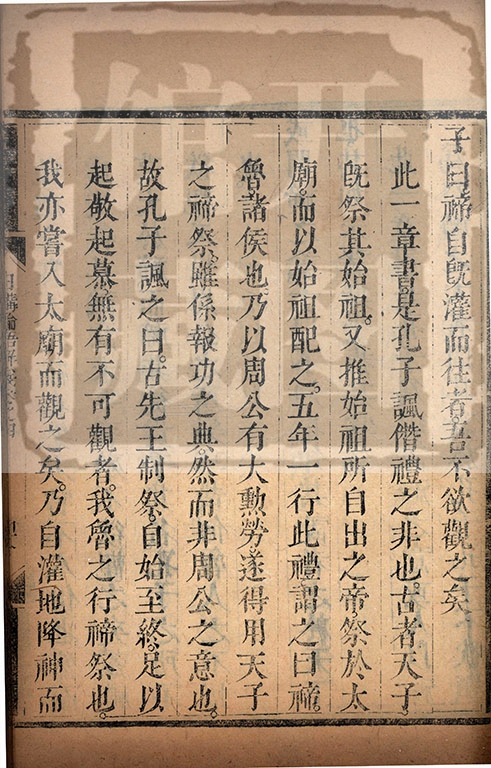 子曰禘自既灌而往者吾不欲觀之矣
此一章書是孔子諷僭禮之非也古者天子
既祭其始祖又推始祖所自出之帝祭於太
廟而以始祖配之五年一行此禮謂之曰禘
魯諸侯也乃以周公有大勲勞遂得用天子
之禘祭雖係報功之典然而非周公之意也
故孔子諷之曰古先王制祭自始至終足以
起敬起慕無有不可觀者我魯之行禘祭也
我亦嘗入太廟而觀之矣乃自灌地降神而
日講論語解義卷之四